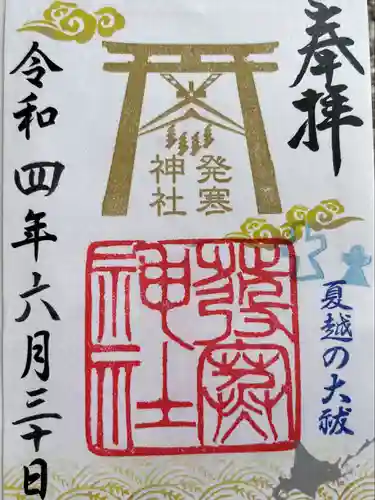 奉拝
発寒
神社
発寒
神社
夏越の大祓
令和四年六月三十日